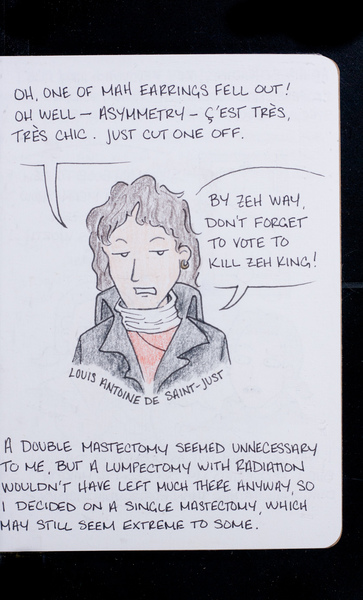 OH, ONE OF MAH EARRINGS FELL OUT!
OH WELL – ASYMMETRY – Ç'EST TRÈS,
TRÈS CHIC. JUST CUT ONE OFF.
BY ZEH WAY,
DON'T FORGET
TO VOTE TO
KILL ZEH KING!
LOUIS ANTOINE DE SAINT-JUST
A DOUBLE MASTECTOMY SEEMED UNNECESSARY
TO ME, BUT A LUMPECTOMY WITH RADIATION
WOULDN'T HAVE LEFT MUCH THERE ANYWAY, SO
I DECIDED ON A SINGLE MASTECTOMY, WHICH
MAY STILL SEEM EXTREME TO SOME.